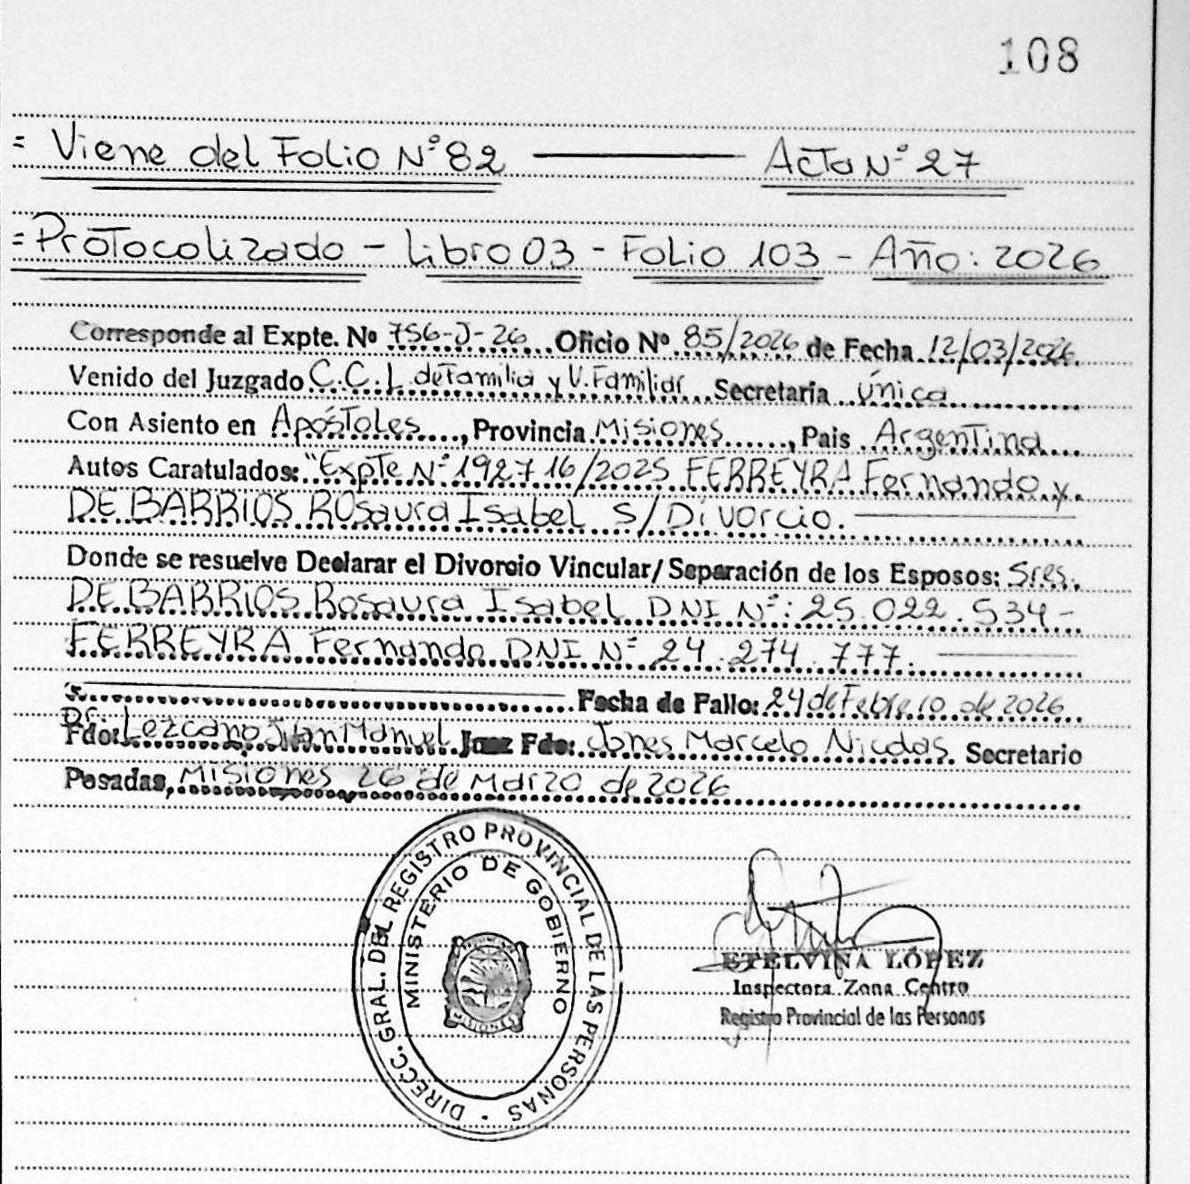 108
= Viene del Folio N° 82 — Acta N° 27
= Protocolizado - Libro 03 - Folio 103 - Año: 2026
Corresponde al Expte. Nº 756-J-26 Oficio Nº 85/2026 de Fecha 12/03/2026
Venido del Juzgado C.C.L. de Familia y V. Familiar Secretaría única
Con Asiento en Apóstoles, Provincia Misiones, Pais Argentina
Autos Caratulados: "Expte N° 192716/2025 FERREYRA Fernando y
DE BARRIOS Rosaura Isabel s/ Divorcio.
Donde se resuelve Declarar el Divorcio Vincular/ Separación de los Esposos: Sres.
DE BARRIOS Rosaura Isabel DNI N°: 25.022.534 -
FERREYRA Fernando DNI N° 24.274.777.
Fecha de Fallo: 24 de Febrero de 2026
Fdo: Dr. Lezcano Juan Manuel Juez Fdo: Jones Marcelo Nicolas. Secretario
Posadas, Misiones 26 de Marzo de 2026
DIRECC. GRAL. DEL REGISTRO PROVINCIAL DE LAS PERSONAS
MINISTERIO DE GOBIERNO
MISIONES
ETELVINA LÓPEZ
Inspectora Zona Centro
Registro Provincial de las Personas